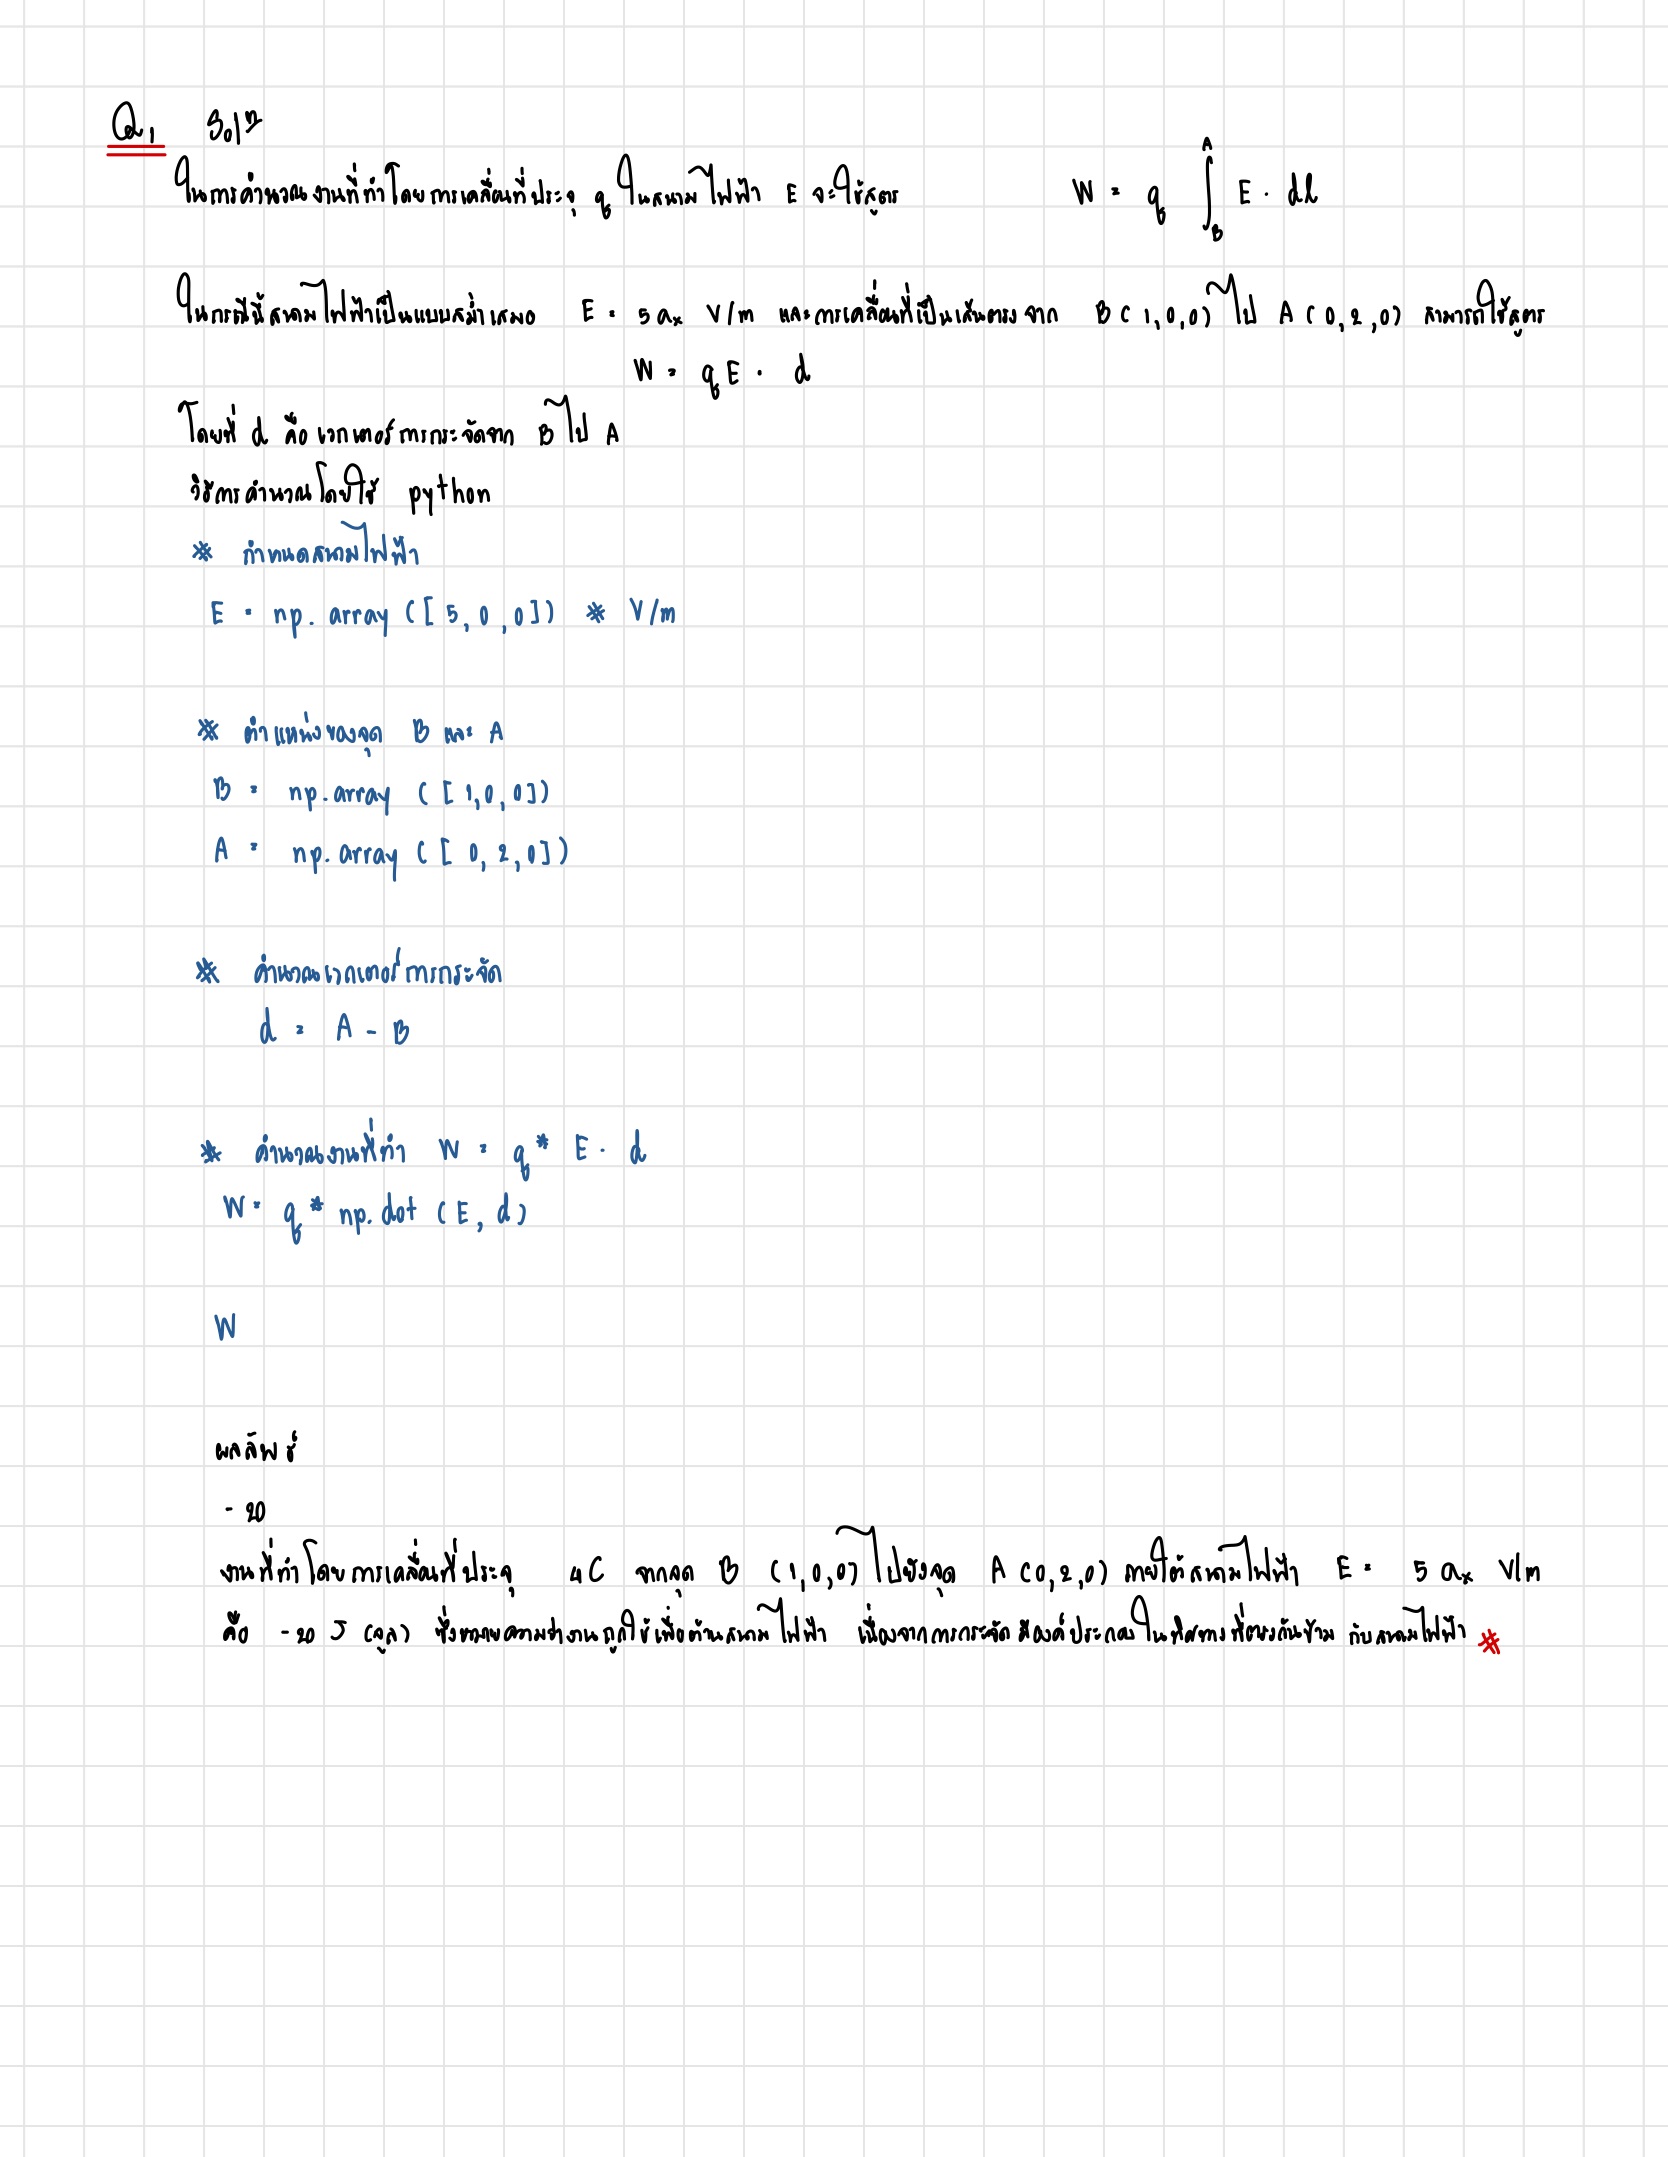 Q1 Solⁿ
ในการคำนวณงานที่ทำโดยการเคลื่อนที่ประจุ q ในสนามไฟฟ้า E จะใช้สูตร W = q ∫_B^A E · dl
ในกรณีนี้สนามไฟฟ้าเป็นแบบสม่ำเสมอ E = 5aₓ V/m และการเคลื่อนที่เป็นเส้นตรงจาก B(1,0,0) ไป A(0,2,0) สามารถใช้สูตร
W = qE · d
โดยที่ d คือ เวกเตอร์การกระจัดจาก B ไป A
วิธีการคำนวณโดยใช้ python
# กำหนดสนามไฟฟ้า
E = np.array([5,0,0]) # V/m
# ตำแหน่งของจุด B และ A
B = np.array([1,0,0])
A = np.array([0,2,0])
# คำนวณเวกเตอร์การกระจัด
d = A - B
# คำนวณงานที่ทำ W = q * E · d
W = q * np.dot(E, d)
W
ผลลัพธ์
-20
งานที่ทำโดยการเคลื่อนที่ประจุ 4C จากจุด B (1,0,0) ไปยังจุด A(0,2,0) ภายใต้สนามไฟฟ้า E = 5aₓ V/m
คือ -20 J (จูล) ซึ่งหมายความว่างานถูกใช้เพื่อต้านสนามไฟฟ้า เนื่องจากการกระจัดมีองค์ประกอบในทิศทางที่ตรงกันข้าม กับสนามไฟฟ้า #